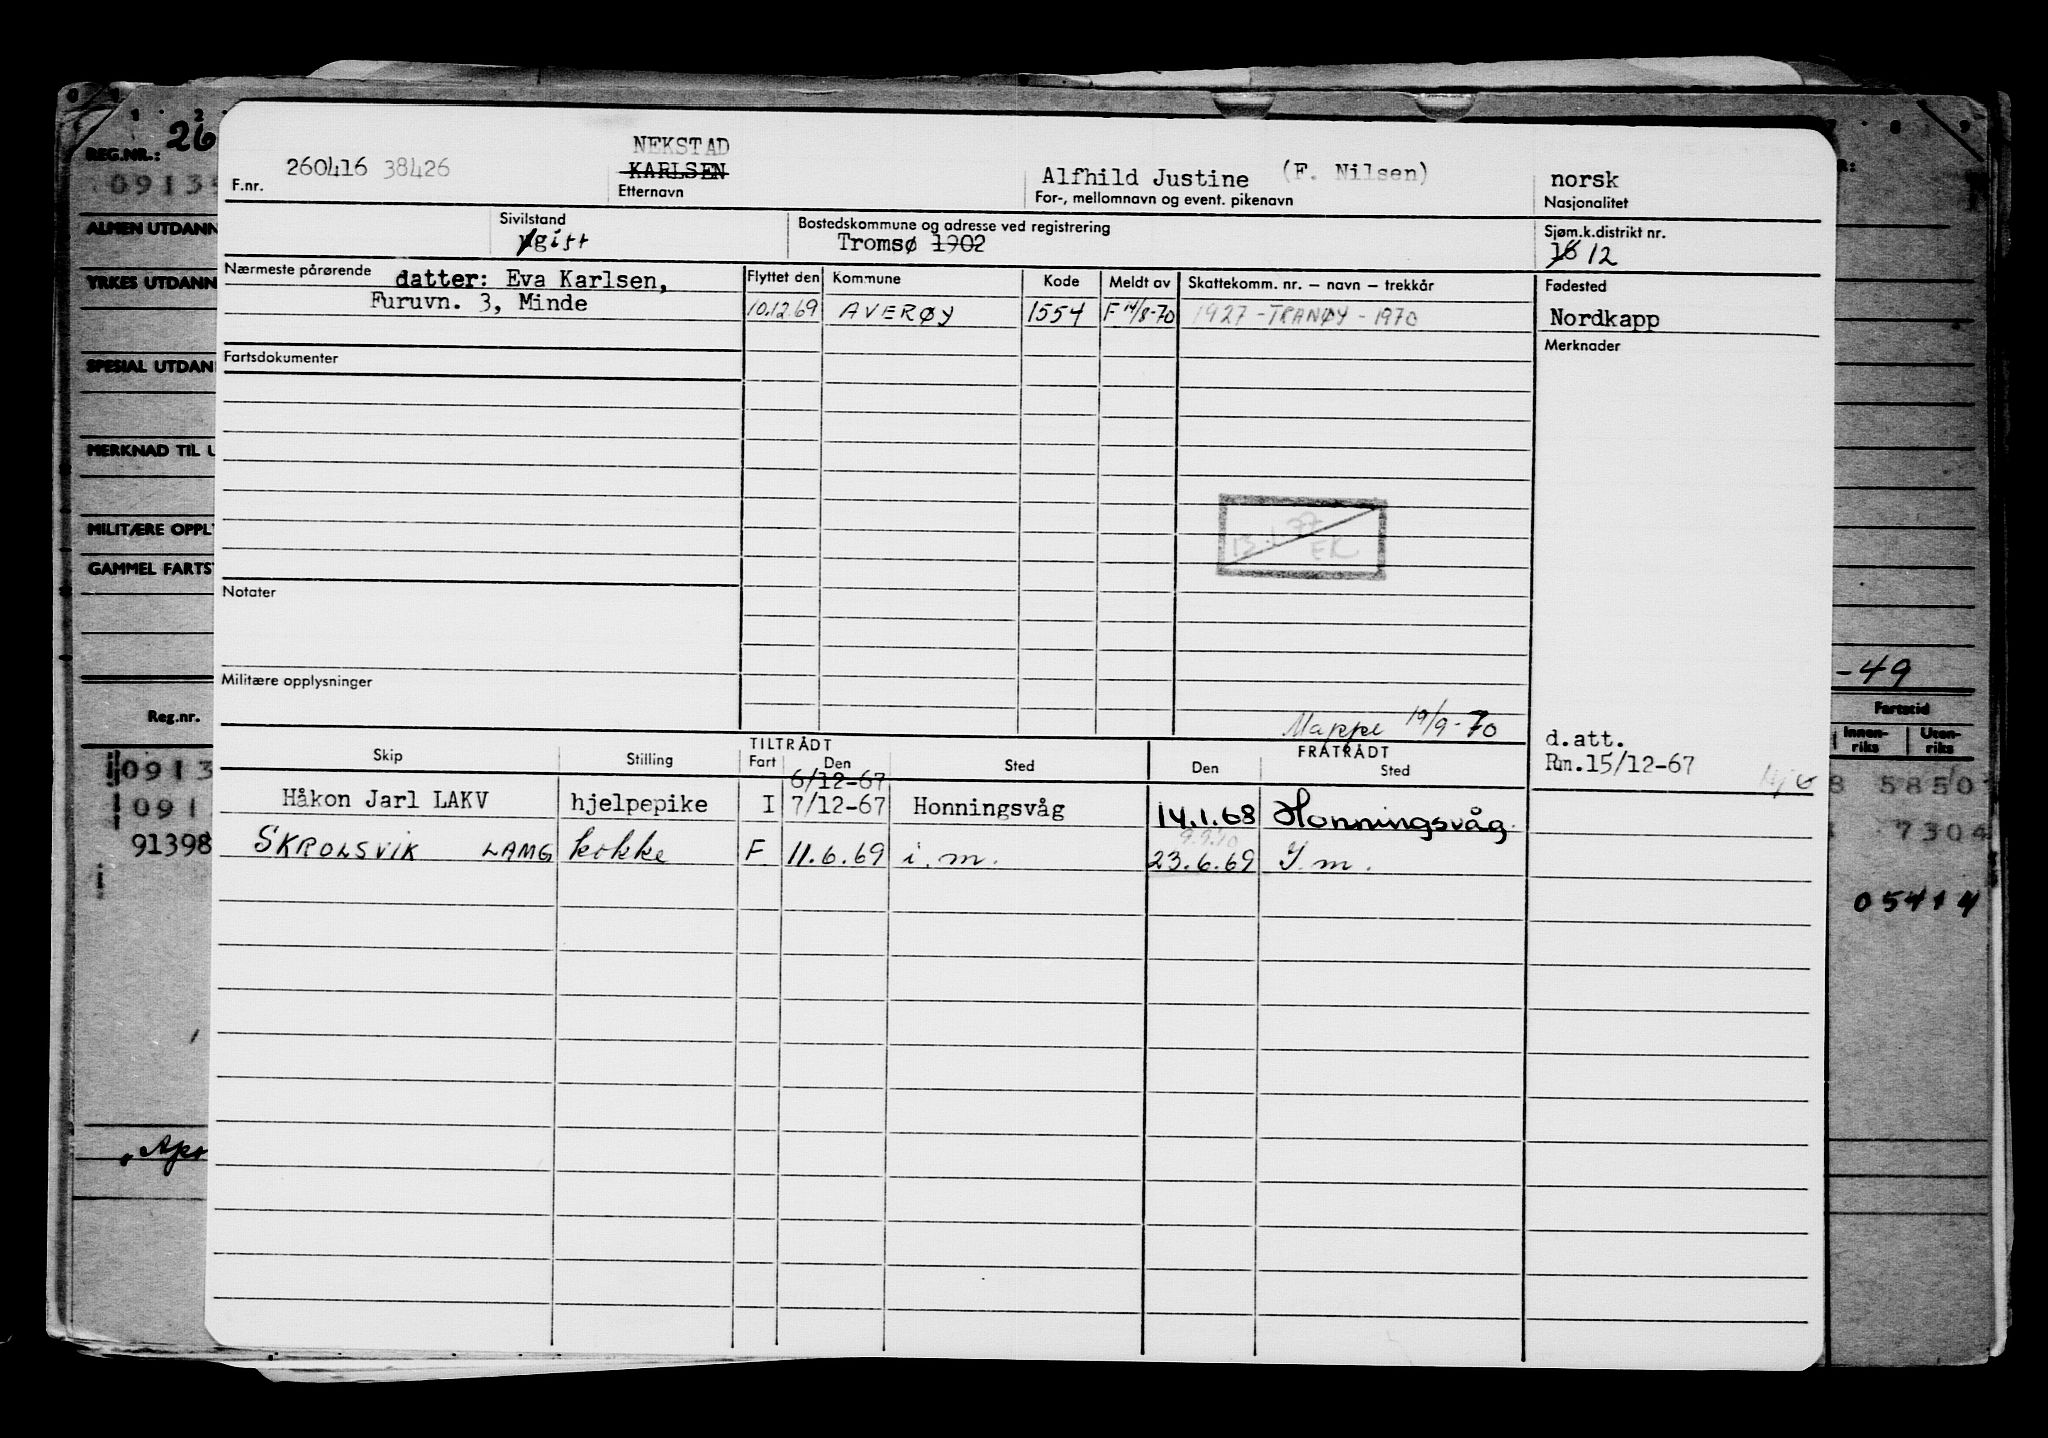 26
REG.NR.:
ALMEN UTDANN
YRKES UTDANN
SPESIAL UTDAN
MERKNAD TIL U
MILITÆRE OPPL
GAMMEL FARTS
Reg.nr.
0913
091
91398
NEKSTAD
260416 38426 KARLSEN Alfhild Justine (F. Nilsen) norsk
F.nr. Etternavn For-, mellomnavn og event. pikenavn Nasjonalitet
Sivilstand Bostedskommune og adresse ved registrering Sjøm.k.distrikt nr.
gift Tromsø 1902 16 12
Nærmeste pårørende datter: Eva Karlsen, Flyttet den Kommune Kode Meldt av Skattekomm. nr. – navn – trekkår Fødested
Furuvn. 3, Minde 10.12.69 AVERØY 1554 F 14/8-70 1927 - TRANØY - 1970 Nordkapp
Fartsdokumenter Merknader
13.1.77
EK
Notater
Militære opplysninger
Mappe 19/9-70
d.att.
Rm.15/12-67
TILTRÅDT FRATRÅDT
Skip Stilling Fart Den Sted Den Sted
6/12-67
Håkon Jarl LAKV hjelpepike I 7/12-67 Honningsvåg 14.1.68 Honningsvåg
9.9.70
SKROLSVIK LAMG kokke F 11.6.69 i.m. 23.6.69 I.m.
-49
Fartstid
Innen-riks Uten-riks
5850
7304
05414